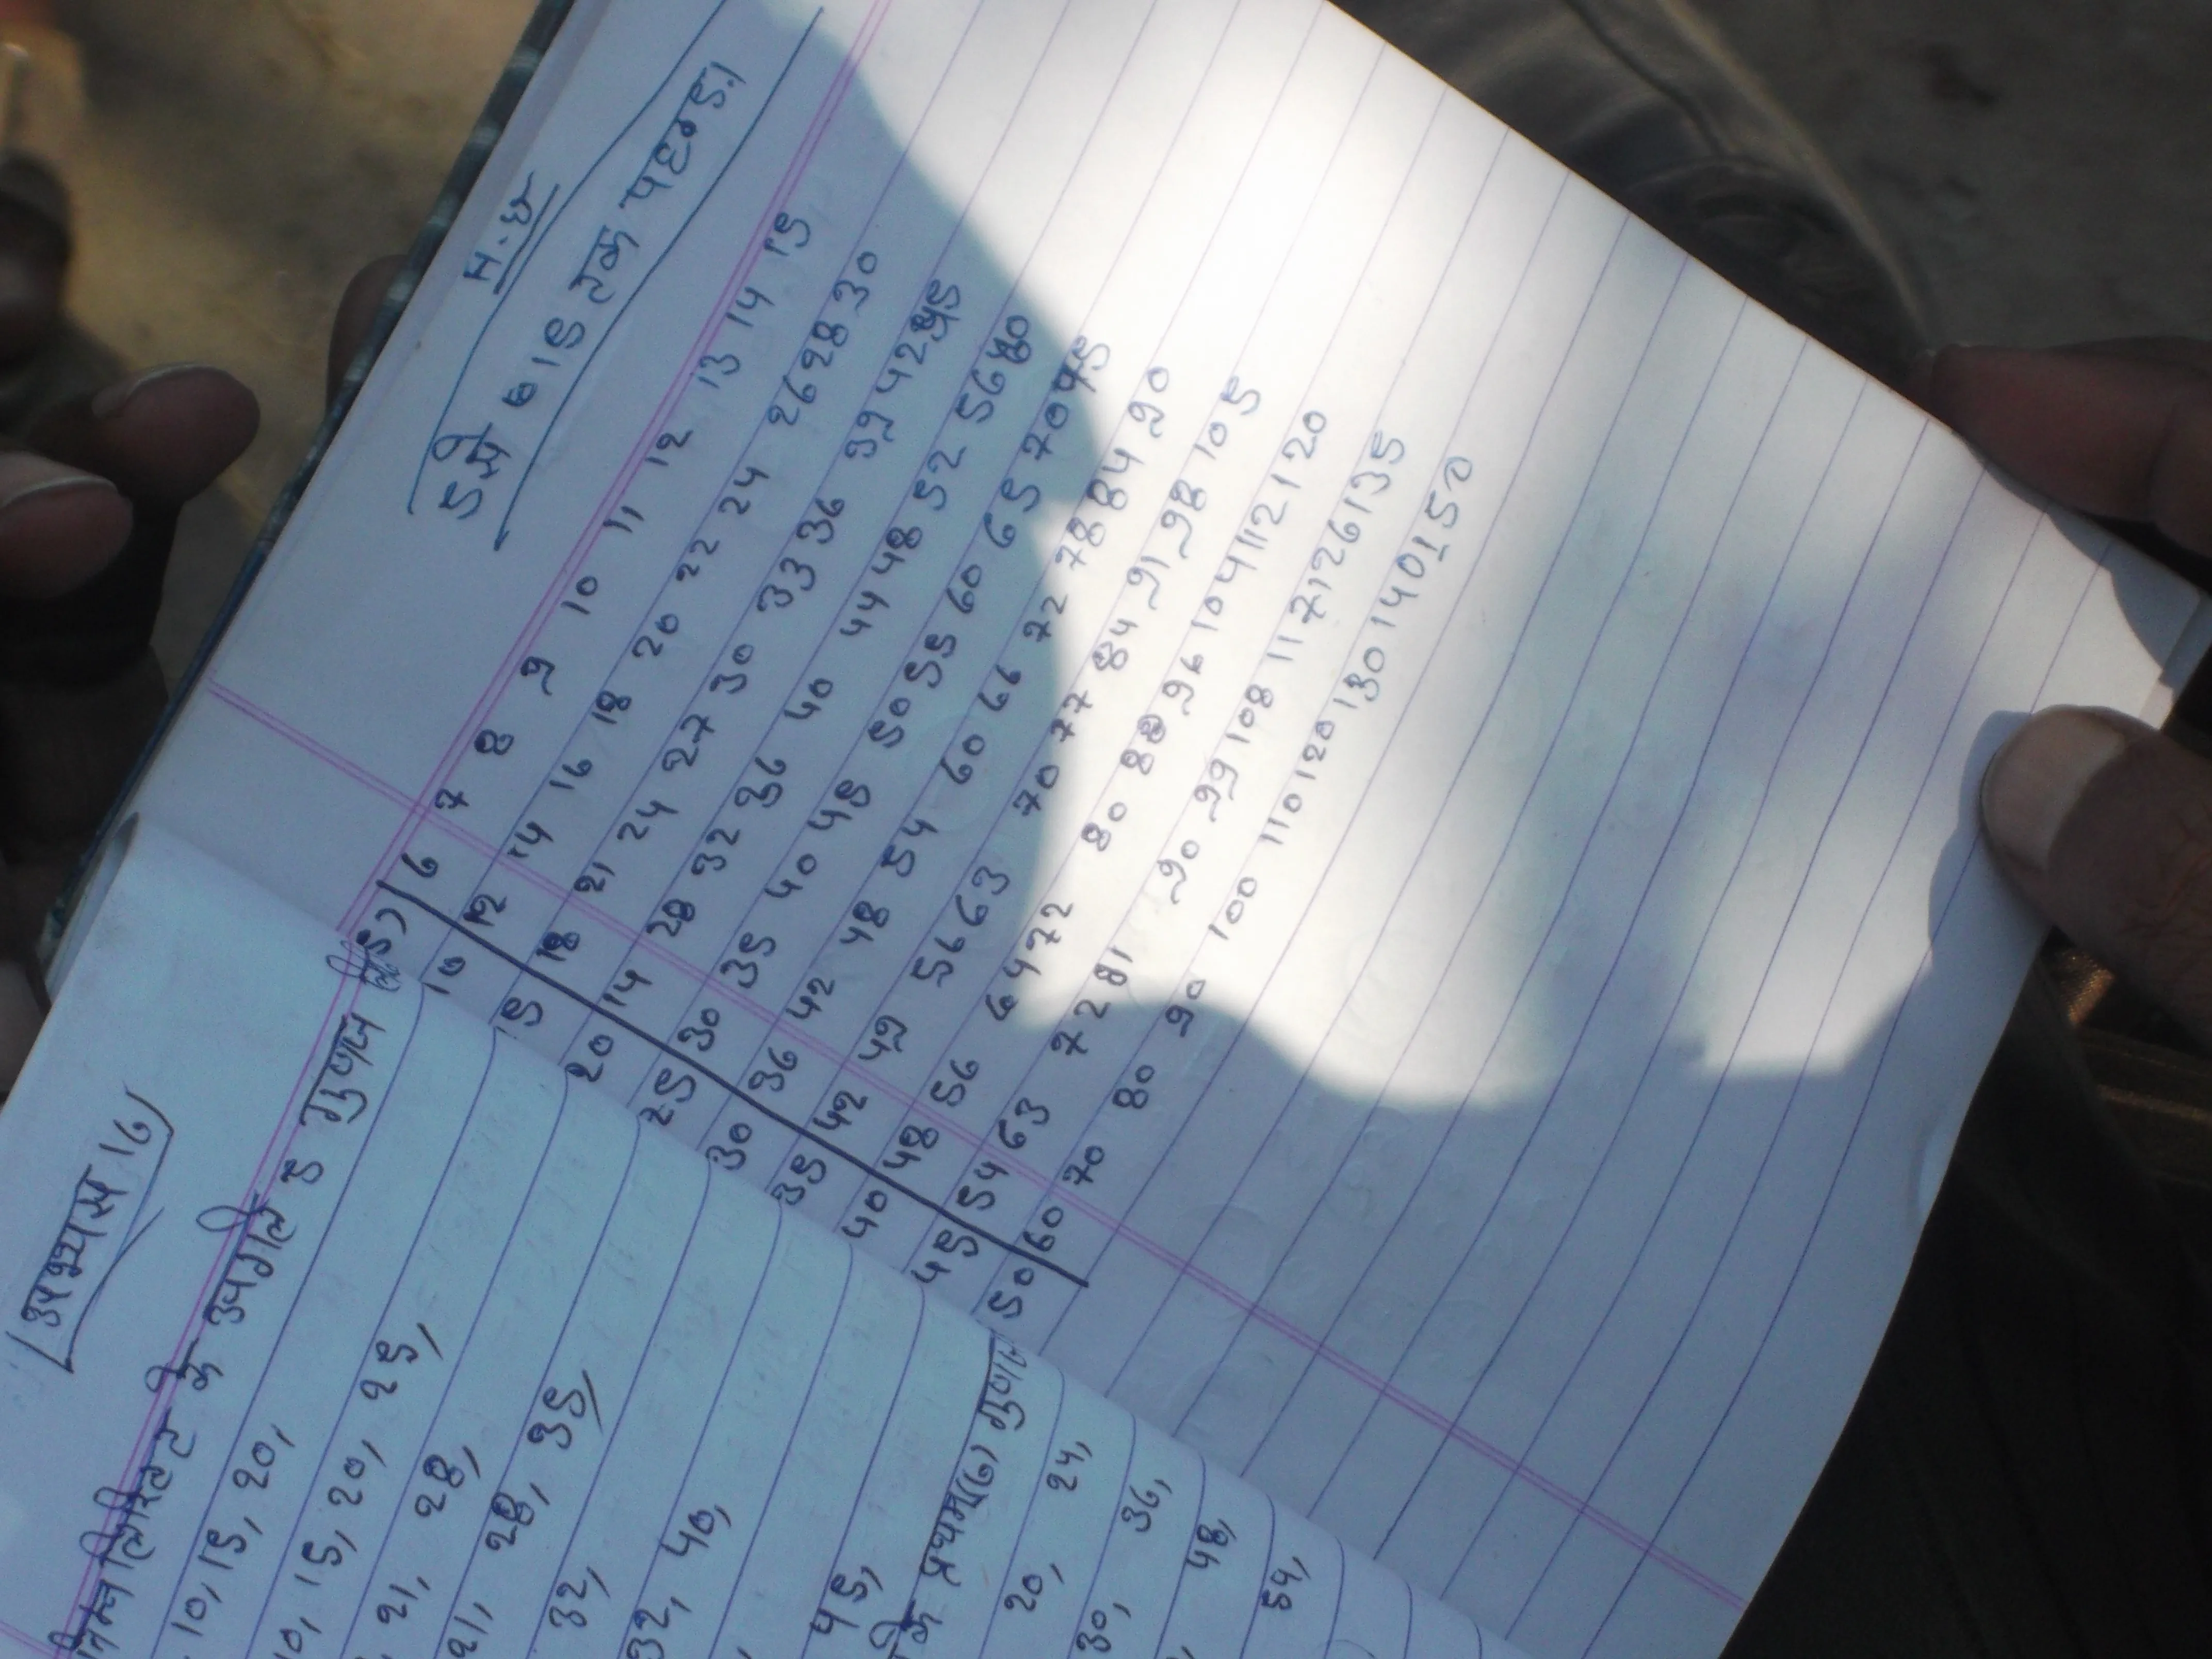 अभ्यास 16
निम्नलिखित के अगले 5 गुणज
10, 15, 20,
10, 15, 20, 25,
21, 28,
21, 28, 35,
32,
32, 40,
45,
के प्रथम (6) गुणज
20, 24,
30, 36,
48,
54,
H.W
15 तक पहाड़ा
5) 6 7 8 9 10 11 12 13 14 15
10 12 14 16 18 20 22 24 26 28 30
15 18 21 24 27 30 33 36 39 42 45
20 14 28 32 36 40 44 48 52 56 60
25 30 35 40 45 50 55 60 65 70 75
30 36 42 48 54 60 66 72 78 84 90
35 42 49 56 63 70 77 84 91 98 105
40 48 56 64 72 80 88 96 104 112 120
45 54 63 72 81 90 99 108 117 126 135
50 60 70 80 90 100 110 120 130 140 150